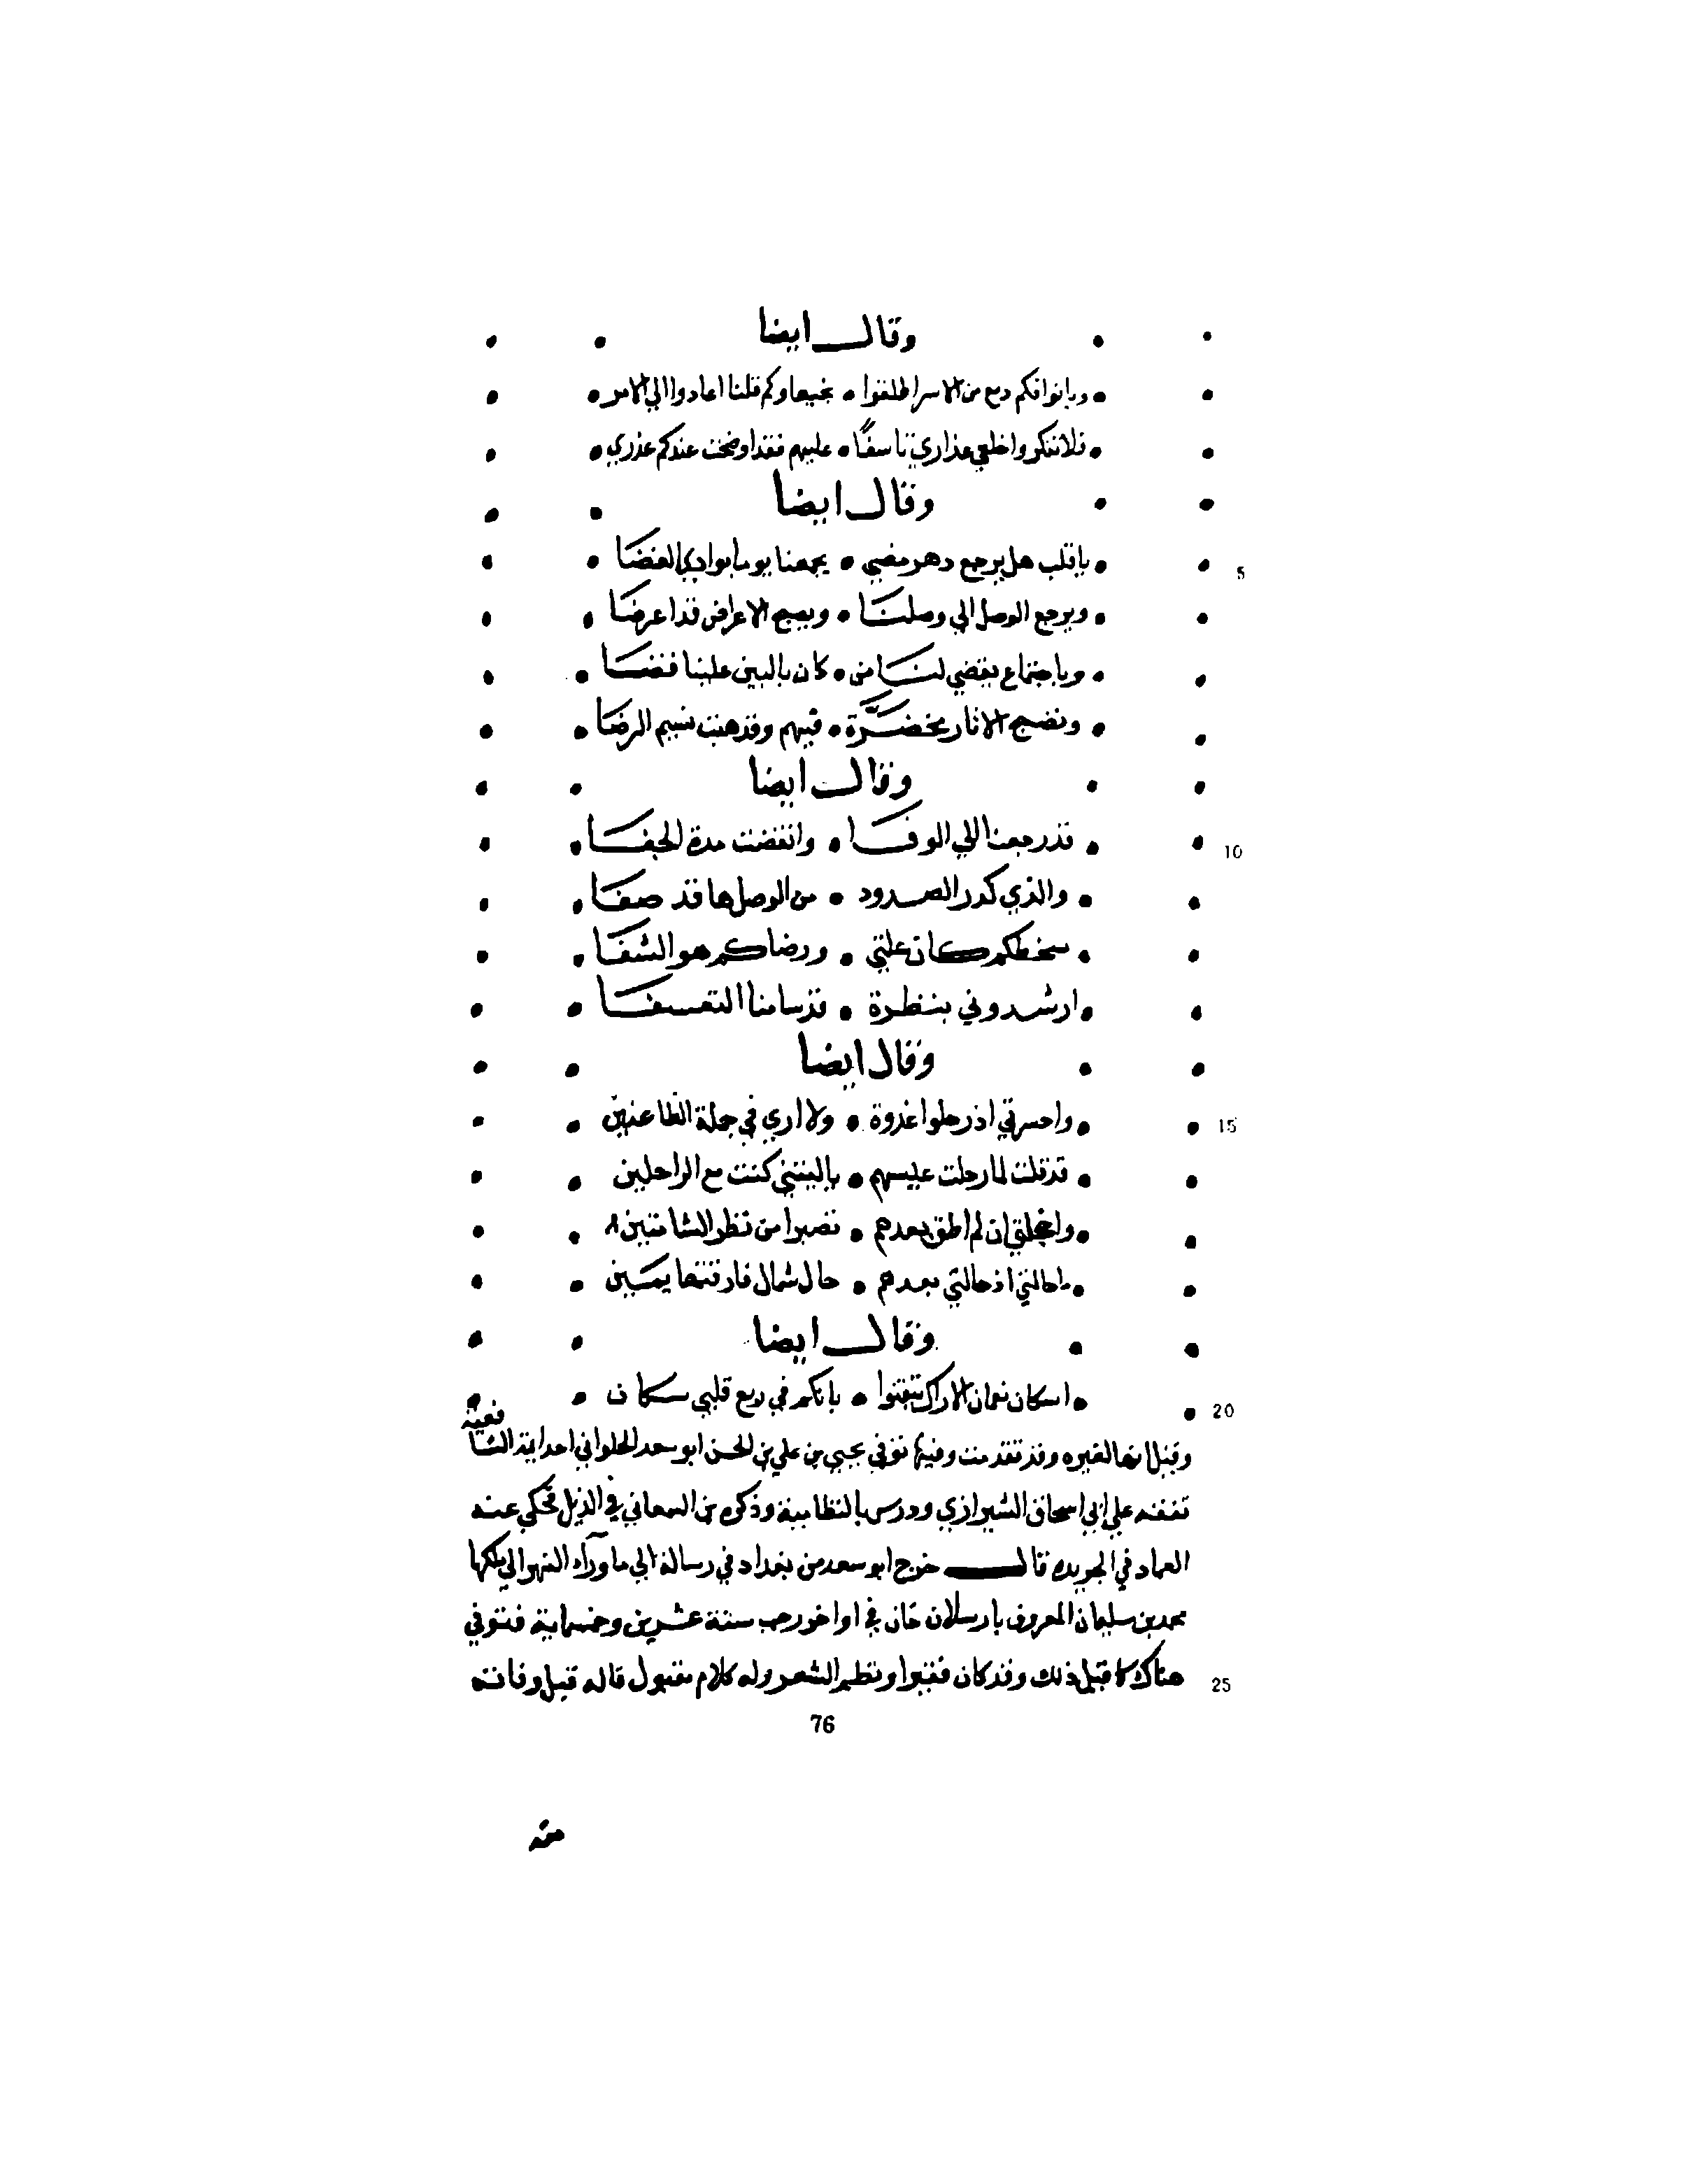 وقال ايضا
وبانوا فكم دمع من الاسر اطلقوا • نجيعا وكم قلنا اعادوا الي الاسر
فلا تنكروا خلعي عذاري تاسفًا • عليهم فقد اوضحت عندكم عذري
وقال ايضا
5 يا قلب هل يرجع دهر مضي • يجمعنا يوما بوادي الغضا
ويرجع الوصل الي وصلنا • ويصبح الاعراض قد اعرضا
وباجتماع يقضي لنا من • كان بالبين علينا قضا
وتضبح الاثار مخضرَّة • فيهم وقد هبت نسيم الرضا
وقال ايضا
10 قد رجعنا الي الوفا • وانقضت مدة الجفا
والذي كدر الصدود • من الوصل ها قد صفا
سخطكم كان علتي • ورضاكم هو الشفا
ارشدوني بنظرة • قد سامنا التعسفا
وقال ايضا
15 واحسرتي اذ رحلوا غدوة • ولا اري في جملة الظاعنين
قد قلت لما رحلت عيسهم • يا ليتني كنت مع الراحلين
واخجلتي ان لم اطق بعدهم • تصبرا من نظر الشامتين
ما حالتي اذ حالتي بعدهم • حال شمال فارقتها يمين
وقال ايضا
20 اسكان نعمان الاراك تيقنوا • بانكم في ربع قلبي سكان
وقيل انها لغيره وقد تقدمت وفيها توفي يحيي بن علي بن الحسن ابو سعد الحلواني احد ايمة الشافعية
تفقه علي ابي اسحاق الشيرازي ودرس بالنظامية وذكره بن السمعاني في الذيل فحكي عنه
العماد في الجريده قال خرج ابو سعد من بغداد في رسالة الي ما ورآء النهر الي ملكها
محمد بن سليمان المعروف بارسلان خان في اواخر رجب سنة عشرين وخمسماية فتوفي
25 هناك كا قبل ذلك وقد كان فقيها ونظم الشعر وله كلام مقبول قاله قبل وفاته
76